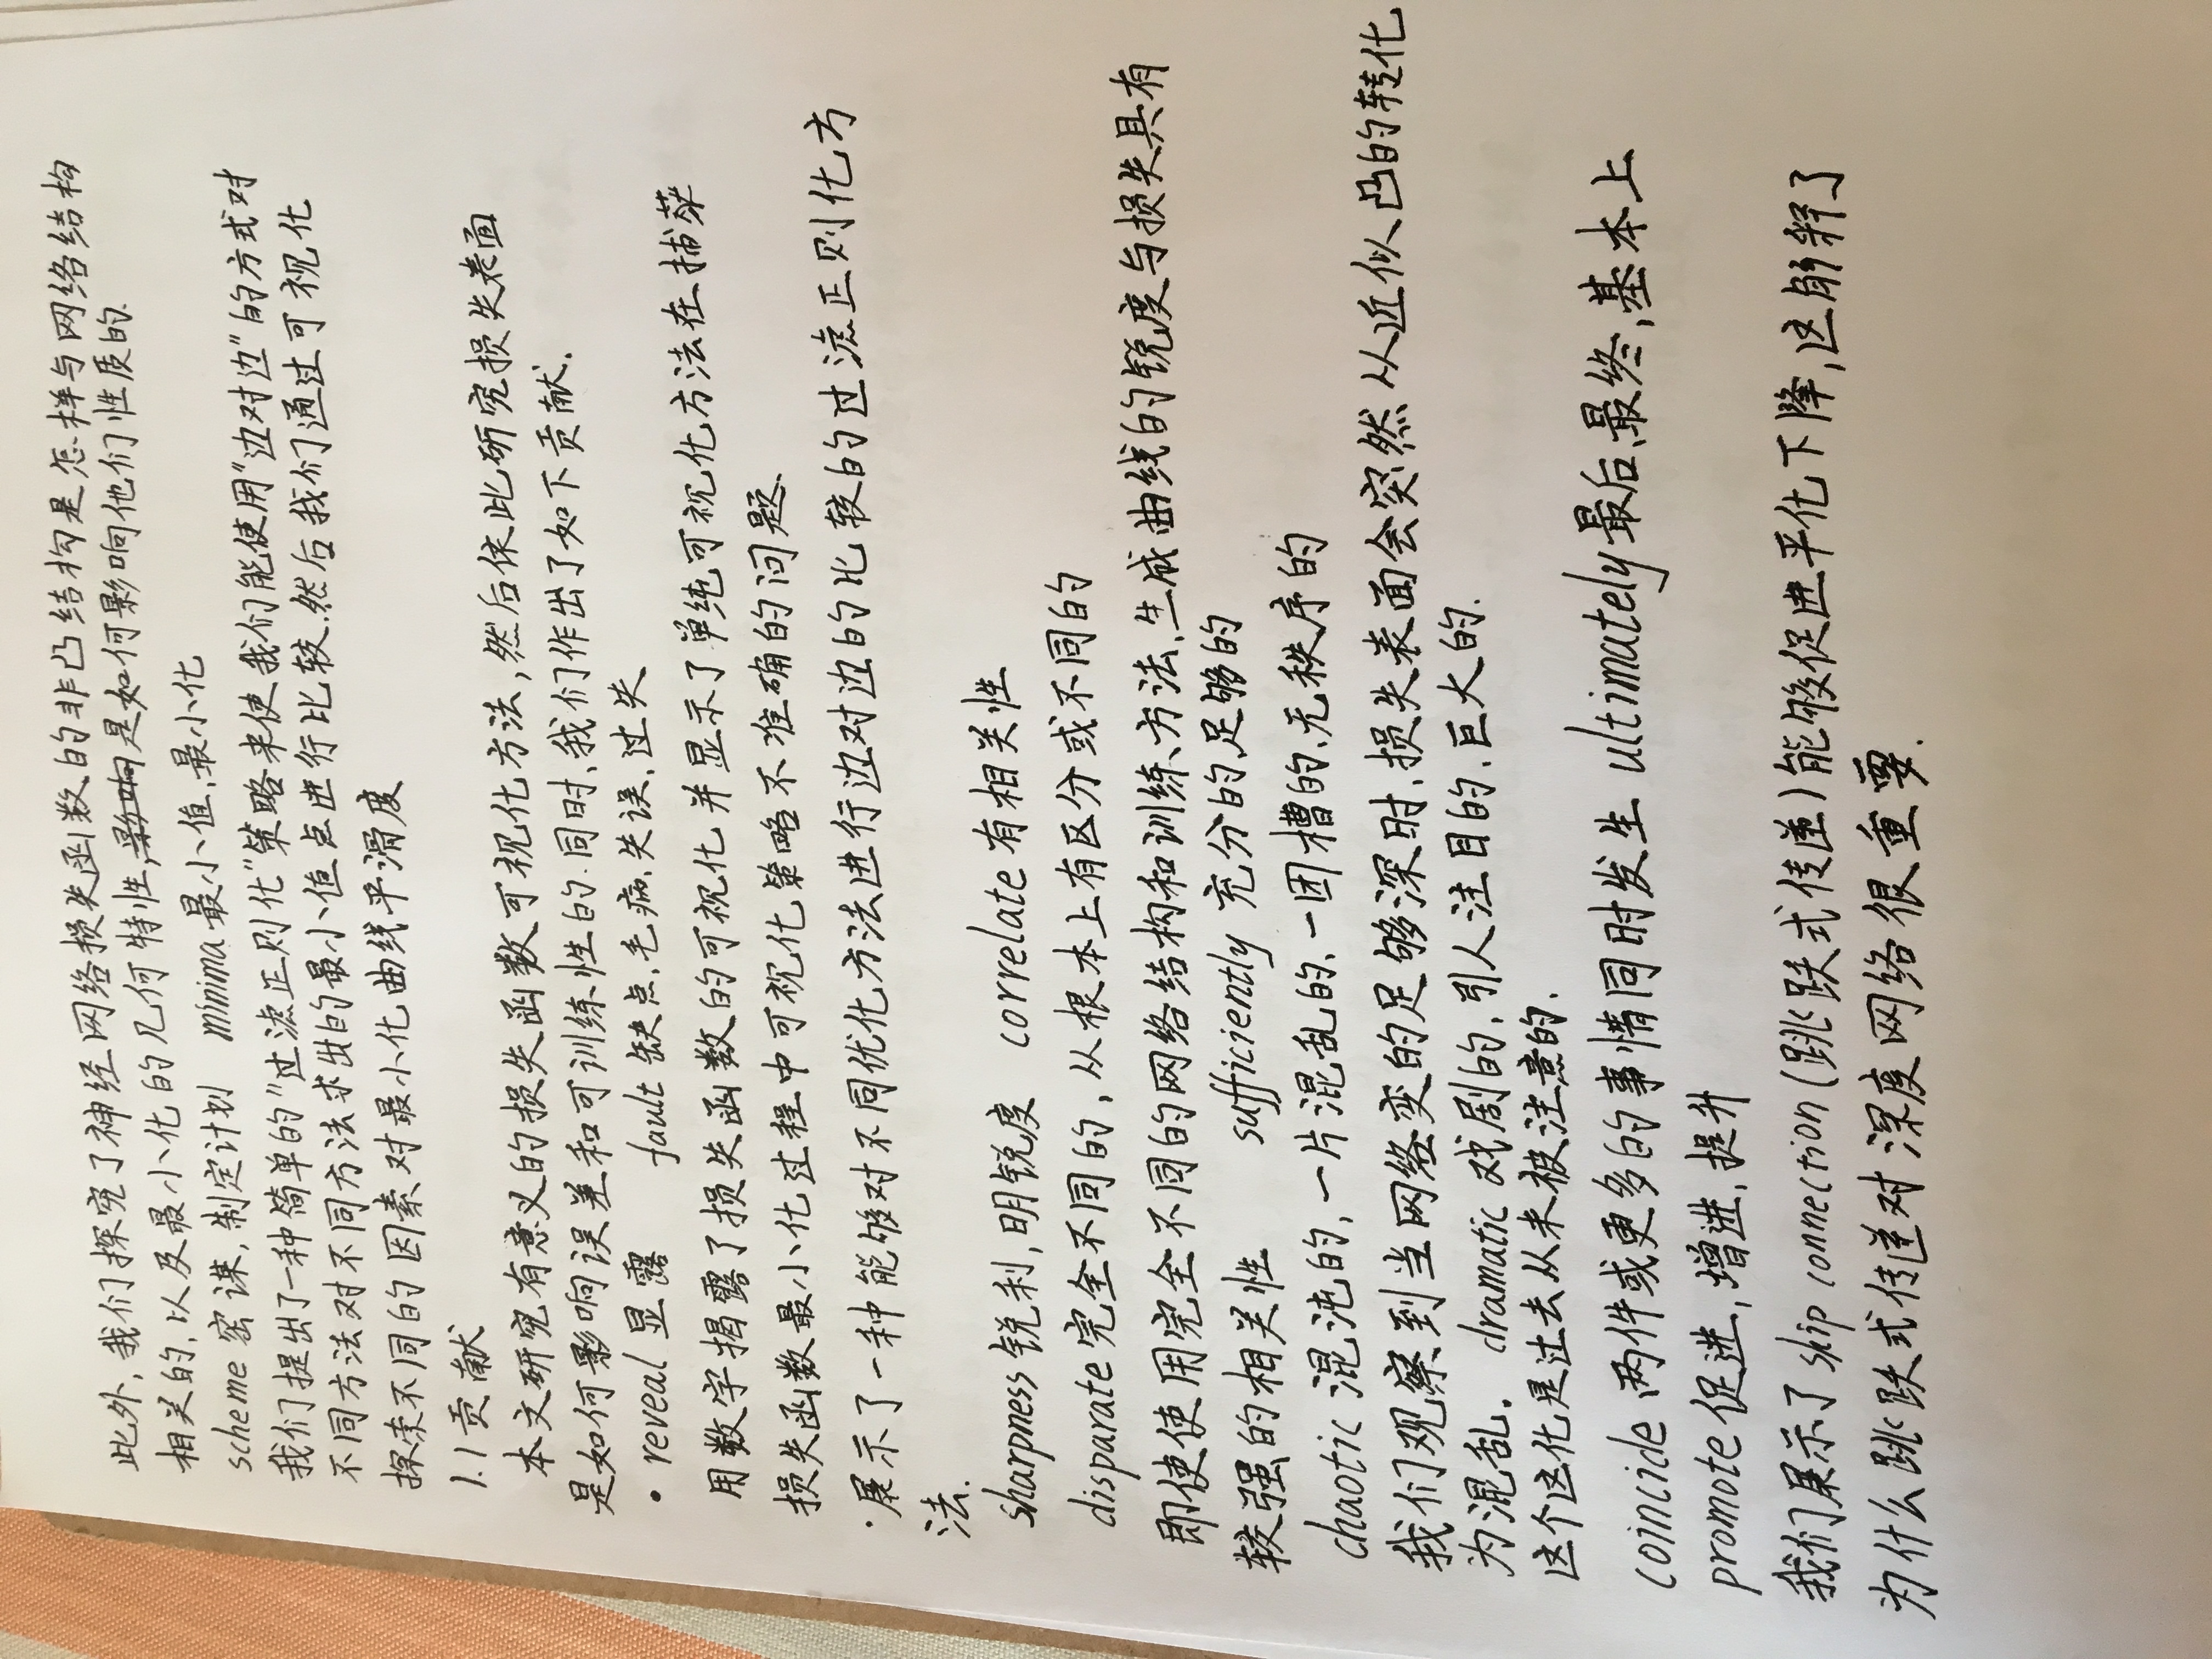 此外,我们探究了神经网络损失函数的非凸结构是怎样与网络结构
相关的,以及最小化的几何特性,影响是如何影响他们性质的.
scheme 密谋,制定计划 minima 最小值,最小化
我们提出了一种简单的"过滤正则化"策略来使我们能使用"边对边"的方式对
不同方法对不同方法求出的最小值点进行比较.然后我们通过可视化
探索不同的因素对最小化曲线平滑度
1.1贡献
本文研究有意义的损失函数可视化方法,然后依此研究损失表面
是如何影响误差和可训练性的.同时,我们作出了如下贡献.
• reveal 显露 fault 缺点,毛病,失误,过失
用数字揭露了损失函数的可视化并显示了单纯可视化方法在捕获
损失函数最小化过程中可视化策略不准确的问题.
·展示了一种能够对不同优化方法进行边对边的比较的过滤正则化方
法.
sharpness 锐利,明锐度 correlate 有相关性
disparate 完全不同的,从根本上有区分或不同的
即使使用完全不同的网络结构和训练方法,生成曲线的锐度与损失具有
较强的相关性 sufficiently 充分的,足够的
chaotic 混沌的,一片混乱的、一团槽的、无秩序的
我们观察到当网络变的足够深时,损失表面会突然从近似凸的转化
为混乱. dramatic 戏剧的,引人注目的,巨大的.
这个这化是过去从未被注意的.
coincide 两件或更多的事情同时发生 ultimately 最后、最终,基本上
promote 促进,增进,提升
我们展示了 skip connection (跳跃式传递)能够促进平化下降,这解释了
为什么跳跃式传递对深度网络很重要.